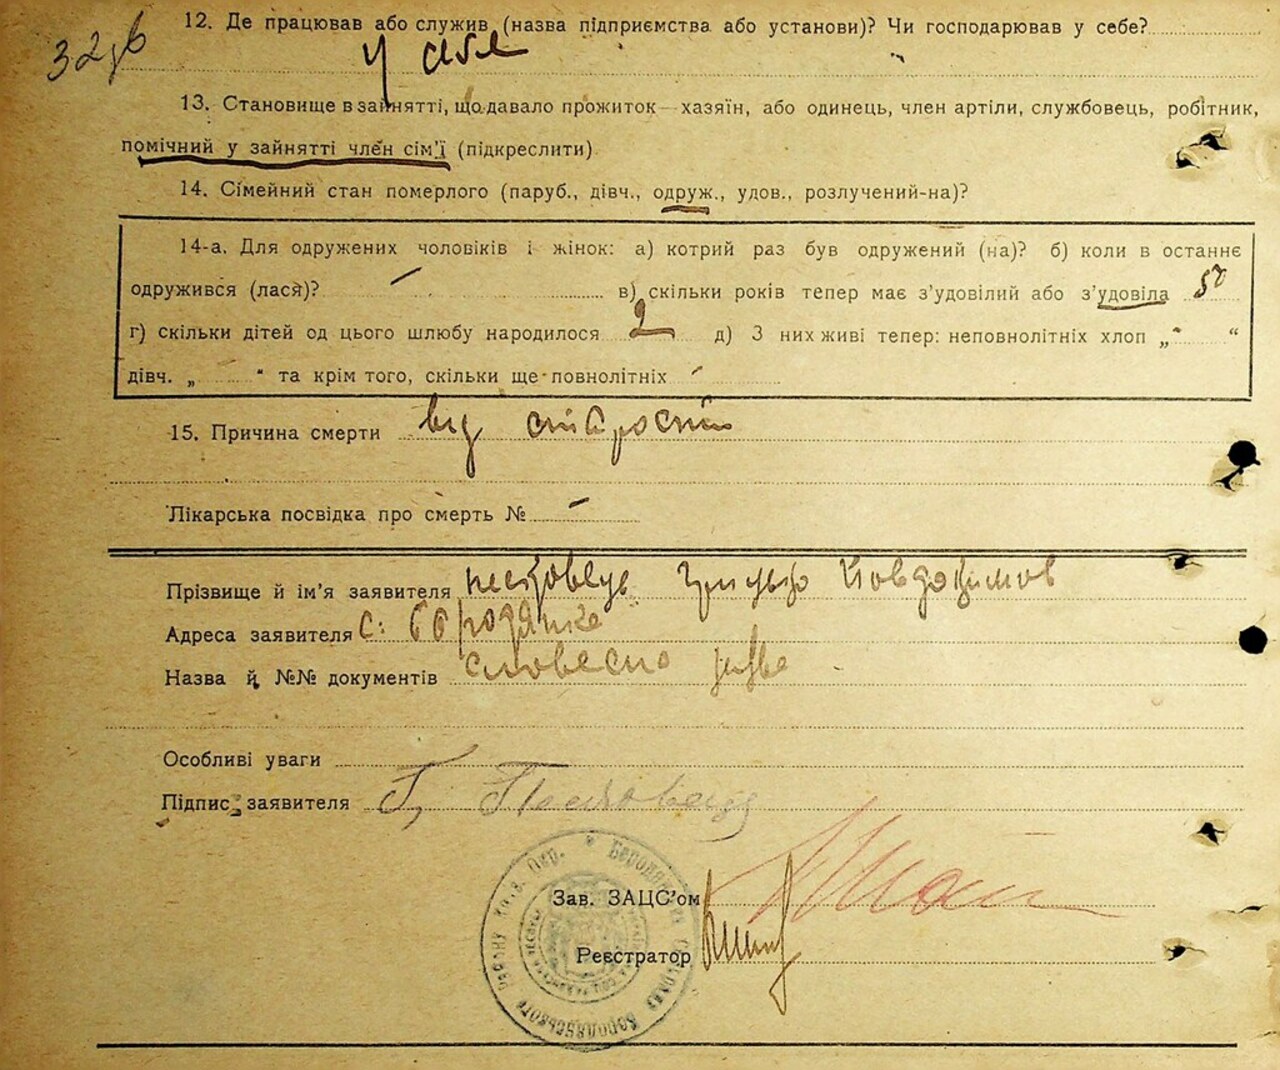 32зв
12. Де працював або служив (назва підприємства або установи)? Чи господарював у себе?
У себе
13. Становище в зайнятті, що давало прожиток — хазяїн, або одинець, член артіли, службовець, робітник,
помічний у зайнятті член сім'ї (підкреслити)
14. Сімейний стан померлого (паруб., дівч., одруж., удов., розлучений-на)?
14-а. Для одружених чоловіків і жінок: а) котрий раз був одружений (на)? б) коли в останнє
одружився (лася)? — в) скільки років тепер має з'удовілий або з'удовіла 50
г) скільки дітей од цього шлюбу народилося 2 д) З них живі тепер: неповнолітніх хлоп „ - “
дівч. „ “ та крім того, скільки ще повнолітніх -
15. Причина смерти від старости
Лікарська посвідка про смерть № -
Прізвище й ім'я заявителя Грицько
Адреса заявителя с. Бородянка
Назва й №№ документів словесно
Особливі уваги
Підпис заявителя Г.
Зав. ЗАЦС'ом
Реєстратор